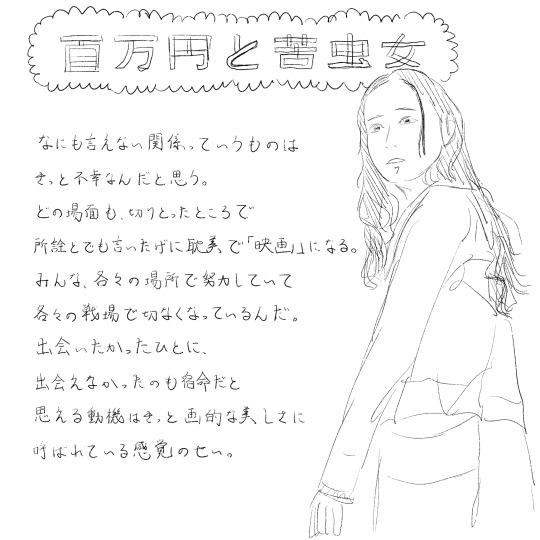 百万円と苦虫女
なにも言えない関係っていうものは
きっと不幸なんだと思う。
どの場面も、切りとったところで
所詮とでも言いたげに耽美で「映画」になる。
みんな、各々の場所で努力していて
各々の戦場で切なくなっているんだ。
出会いたかったひとに、
出会えなかったのも宿命だと
思える動機はきっと画的な美しさに
呼ばれている感覚のせい。